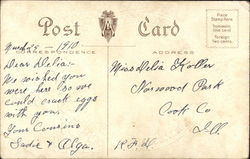 Post Card
Place Stamp Here
Domestic
One Cent
Foreign
Two Cents
CORRESPONDENCE
ADDRESS
1910.
Dear Delia:-
We wished you
were here so we
could crack eggs
with you.
Your Cousins
Sadie & Olga.
Miss Delia Koller
Norwood Park
Cook Co.
Ill
R.F.D.